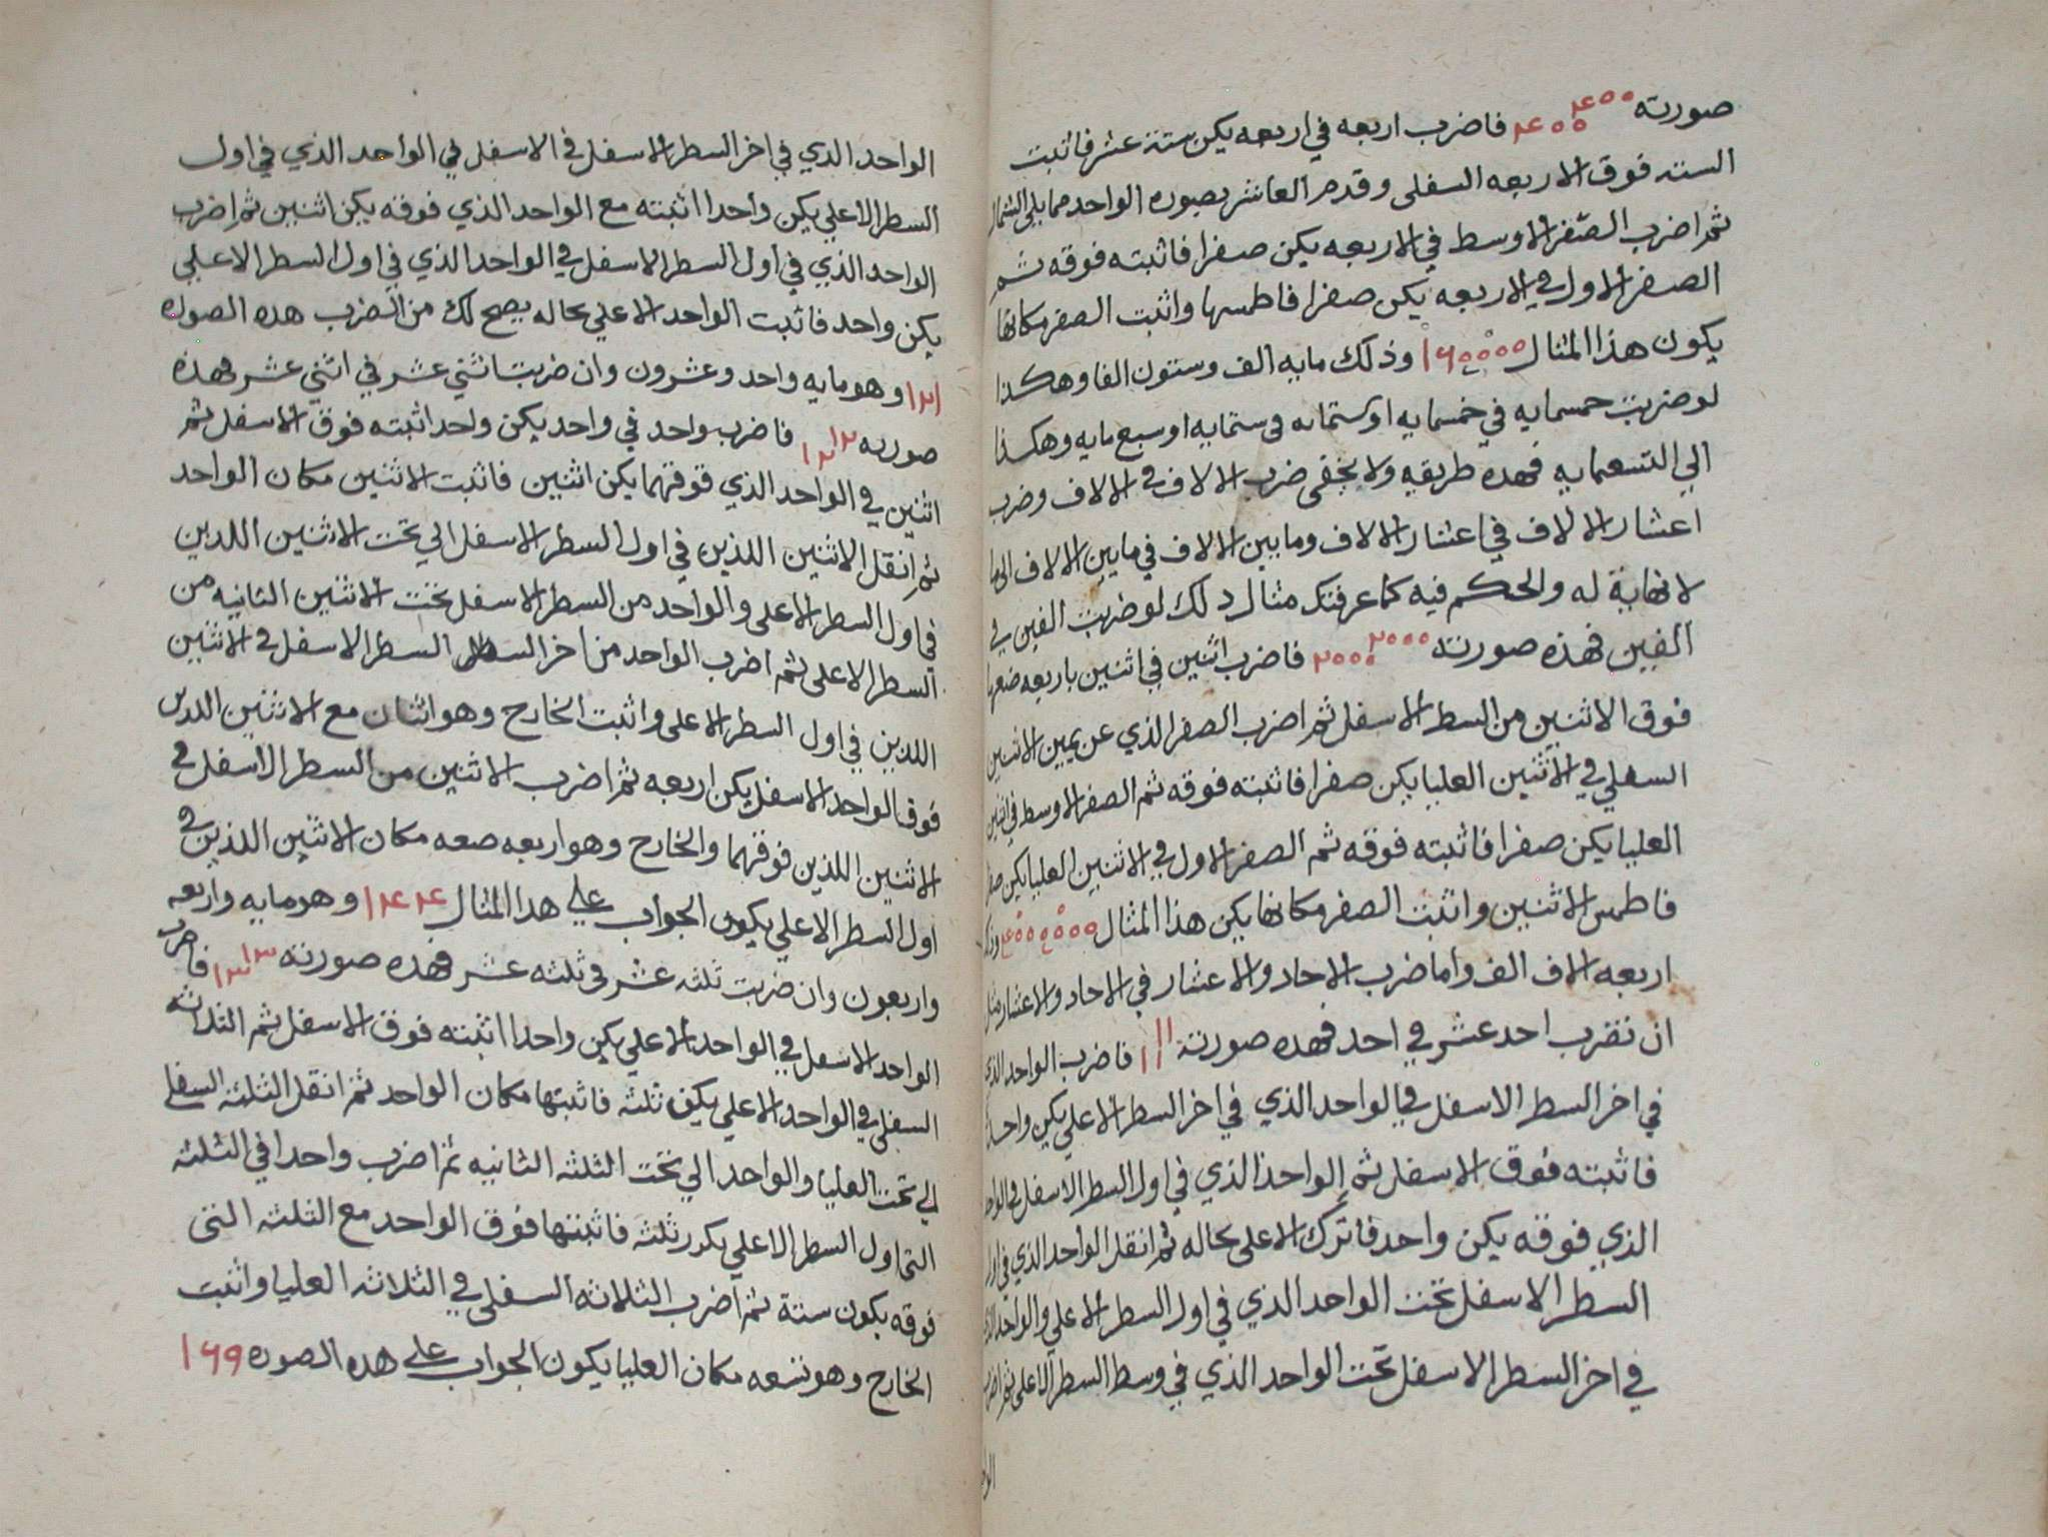 صورته ٤٠٠ ٤٠٠ فاضرب اربعه في اربعه يكن ستة عشر فاثبت
السته فوق الاربعه السفلى وقدم العاشر بصوره الواحد مما يلي الشمال
ثم اضرب الصفر الاوسط في الاربعه يكن صفرا فاثبته فوقه ثم
الصفر الاول في الاربعه يكن صفرا فاطمسها واثبت الصفر مكانها
يكون هذا المثال ١٦٠٠٠٠ وذلك مايه الف وستون الفا وهكذا
لو ضربت خمسمايه في خمسمايه او ستمايه في ستمايه او سبع مايه وهكذا
الي التسعمايه فهذه طريقه ولا يخفى ضرب الالاف في الالاف وضرب
اعشار الالاف في اعشار الالاف وما بين الالاف في ما بين الالاف الى ما
لا نهاية له والحكم فيه كما عرفتك مثال ذلك لو ضربت الفين في
الفين فهذه صورته ٢٠٠٠ ٢٠٠٠ فاضرب اثنين في اثنين باربعه ضعها
فوق الاثنين من السطر الاسفل ثم اضرب الصفر الذي عن يمين الاثنين
السفلي في الاثنين العليا يكن صفرا فاثبته فوقه ثم الصفر الاوسط في اثنين
العليا يكن صفرا فاثبته فوقه ثم الصفر الاول في الاثنين العليا يكن صفر
فاطمس الاثنين واثبت الصفر مكانها يكن هذا المثال ٤٠٠٠٠٠٠
اربعه الاف الف واما ضرب الاحاد والاعشار في الاحاد والاعشار مثل
ان تضرب احد عشر في احد فهذه صورته ١١ ١١ فاضرب الواحد الذي
في اخر السطر الاسفل في الواحد الذي في اخر السطر الاعلي يكن واحدا
فاثبته فوق الاسفل ثم الواحد الذي في اول السطر الاسفل في الواحد
الذي فوقه يكن واحد فاترك الاعلى بحاله ثم انقل الواحد الذي في اول
السطر الاسفل تحت الواحد الذي في اول السطر الاعلي والواحد الذي
في اخر السطر الاسفل تحت الواحد الذي في وسط السطر الاعلى ثم اضرب
الواحد الذي في اخر السطر الاسفل في الاسفل في الواحد الذي في اول
السطر الاعلي يكن واحدا اثبته مع الواحد الذي فوقه يكن اثنين ثم اضرب
الواحد الذي في اول السطر الاسفل في الواحد الذي في اول السطر الاعلي
يكن واحد فاثبت الواحد الاعلي بحاله يصح لك من الضرب هذه الصوره
١٢١ وهو مايه واحد وعشرون وان ضربت اثني عشر في اثني عشر فهذه
صورته ١٢ ١٢ فاضرب واحد في واحد يكن واحد اثبته فوق الاسفل ثم
اثنين في الواحد الذي فوقهما يكن اثنين فاثبت الاثنين مكان الواحد
ثم انقل الاثنين اللذين في اول السطر الاسفل الي تحت الاثنين اللذين
في اول السطر الاعلى والواحد من السطر الاسفل تحت الاثنين الثانيه من
السطر الاعلى ثم اضرب الواحد من اخر السطر السطر الاسفل في الاثنين
اللدين في اول السطر الاعلى واثبت الخارج وهو اثنان مع الاثنين اللدين
فوق الواحد الاسفل يكن اربعه ثم اضرب الاثنين من السطر الاسفل في
الاثنين اللذين فوقهما والخارج وهو اربعه ضعه مكان الاثنين اللذين في
اول السطر الاعلي يكون الجواب علي هذا المثال ١٤٤ وهو مايه واربعه
واربعون وان ضربت ثلثه عشر في ثلثه عشر فهذه صورته ١٣ ١٣ فاضرب
الواحد الاسفل في الواحد الاعلي يكن واحدا اثبته فوق الاسفل ثم الثلاثه
السفلى في الواحد الاعلي يكن ثلثه فاثبتها مكان الواحد ثم انقل الثلثه السفلي
الي تحت العليا والواحد الي تحت الثلثه الثانيه ثم اضرب واحدا في الثلثه
التي اول السطر الاعلي يكن ثلثه فاثبتها فوق الواحد مع الثلثه التي
فوقه يكون ستة ثم اضرب الثلاثه السفلى في الثلاثه العليا واثبت
الخارج وهو تسعه مكان العليا يكون الجواب علي هذه الصوره ١٦٩